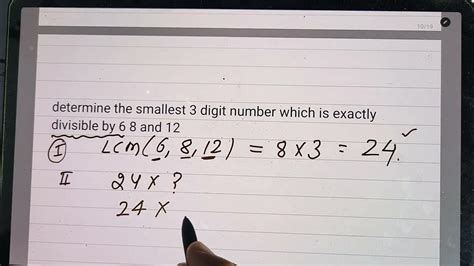 10/19
determine the smallest 3 digit number which is exactly
divisible by 6 8 and 12
I LCM(6, 8, 12) = 8 x 3 = 24. ✓
II 24 x ?
24 x